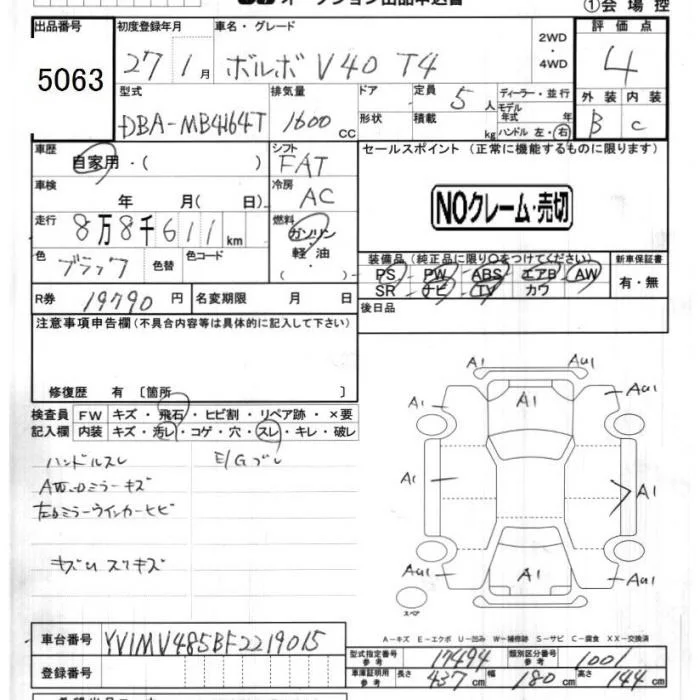 オークション出品申込書
①会場控
出品番号 初度登録年月 車名・グレード 2WD・4WD 評価点
5063 27 1月 ボルボ V40 T4 4
型式 排気量 ドア 定員 5人 ディーラー・並行 外装 内装
DBA-MB4164T 1600cc 形状 積載 kg モデル年式 年 ハンドル 左・右 B C
車歴 自家用・( ) シフト FAT セールスポイント(正常に機能するものに限ります)
車検 年 月( 日) 冷房 AC
NOクレーム・売切
走行 8万8千611km 燃料 ガソリン・軽油・( )
色 ブラック 色替 色コード
装備品(純正品に限り○をつけてください) 新車保証書
PS PW ABS エアB AW 有・無
SR ナビ TV カワ
R券 19790円 名変期限 月 日 後日品
注意事項申告欄(不具合内容等は具体的に記入して下さい)
修復歴 有 〔箇所 〕
検査員 FW キズ・飛石・ヒビ割・リペア跡・×要
記入欄 内装 キズ・汚レ・コゲ・穴・スレ・キレ・破レ
ハンドルスレ E/Gブレ
AW・Dミラーキズ
左Dミラーウインカーヒビ
キズUスリキズ
A1 AU1
A1 AU1
A1 A1
AU1 A1 AU1
スペア
A-キズ E-エクボ U-凹み W-補修跡 S-サビ C-腐食 XX-交換済
車台番号 YV1MV485BF2219015
型式指定番号 参考 17494 類別区分番号 参考 1001
登録番号 車庫証明用 参考 長さ 437cm 幅 180cm 高さ 144cm